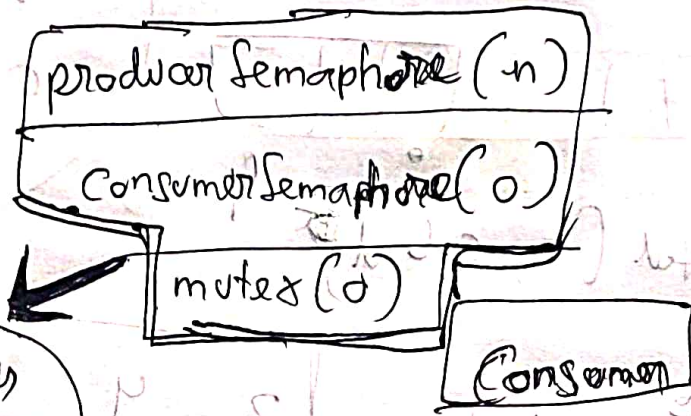 producer Semaphore (n)
Consumer Semaphore (0)
mutex (0)
Consumer